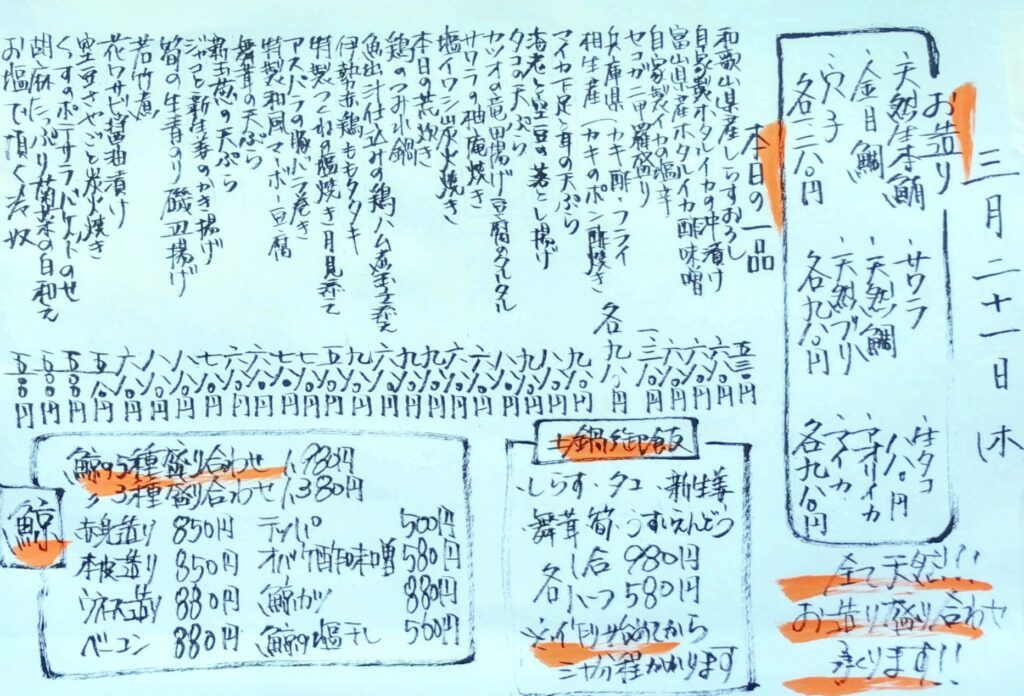 三月二十一日(木)
お造り
・天然生本鮪
・金目鯛
・穴子
各一二八〇円
・サワラ
・天然鯛
・天然ブリ
各九八〇円
・生タコ
八八〇円
・アオリイカ
・マイカ
各九八〇円
全て天然!!!
お造り盛り合わせ
承ります!!
本日の一品
和歌山県産しらすおろし 五三〇円
自家製ホタルイカの沖漬け 六八〇円
富山県産ホタルイカ酢味噌 六八〇円
自家製イカの塩辛
セコガニ甲羅盛り
兵庫県(カキ酢・フライ
相生産(カキのポン酢焼き 各九八〇円
マイカ下足と耳の天ぷら
海老と空豆の落とし揚げ
タコの天ぷら
カツオの竜田揚げ豆腐のタルタル
サワラの柚庵焼き
塩イワシ炭火焼き
本日の荒炊き
鶏のつみれ鍋
魚出汁仕込みの鶏ハム
伊勢赤鶏ももタタキ
特製つくねの塩焼き月見添えて
アスパラの豚バラ巻き
特製和風マーボー豆腐
舞茸の天ぷら
新玉葱の天ぷら
ジャコと新生姜のかき揚げ
筍の生青のり磯辺揚げ
若竹煮
花ワサビ醤油漬け
空豆さやごと炭火焼き 五〇〇円
くずのポテサラバゲットのせ 五〇〇円
胡麻たっぷり菊菜の白和え 五〇〇円
お塩で頂く冷奴 五〇〇円
土鍋御飯
・しらす・タコ・新生姜
舞茸・筍・うすいえんどう
各 一合 980円
ハーフ 580円
※作り始めてから
三十分程かかります
鯨
鯨の5種盛り合わせ 1,980円
〃 3種盛り合わせ 1,380円
赤身造り 850円
本皮造り 850円
ウネス造り 880円
ベーコン 880円
テッパ 500円
オバケ酢味噌 580円
鯨カツ 880円
鯨の塩干し 560円